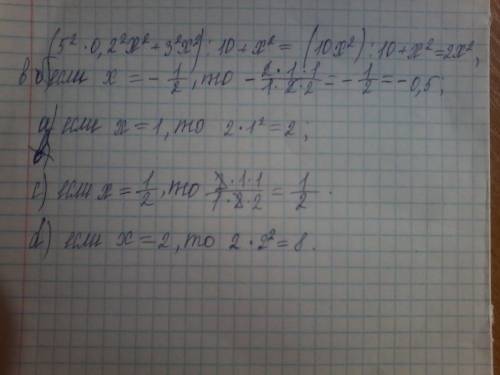 (5² · 0,2²x² + 3²x²) : 10 + x² = (10x²) : 10 + x² = 2x²;
в) если x = -1/2, то -(2·1·1)/(1·2·2) = -1/2 = -0,5;
a) если x = 1, то 2 · 1² = 2;
c) если x = 1/2, то (2·1·1)/(1·2·2) = 1/2.
d) если x = 2, то 2 · 2² = 8.